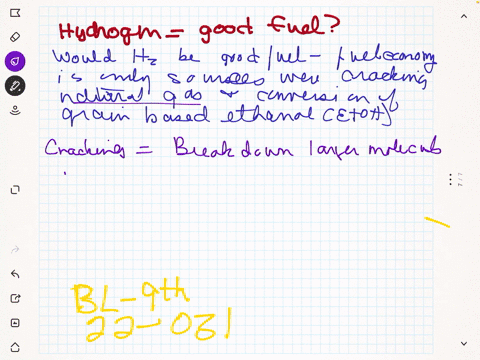 Hydrogen = good fuel?
Would H2 be good fuel - fuel economy
is only so were cracking
natural gas + conversion of
grain based ethanol (EtOH)
Cracking = Break down larger molecules
BL-9th
22-031